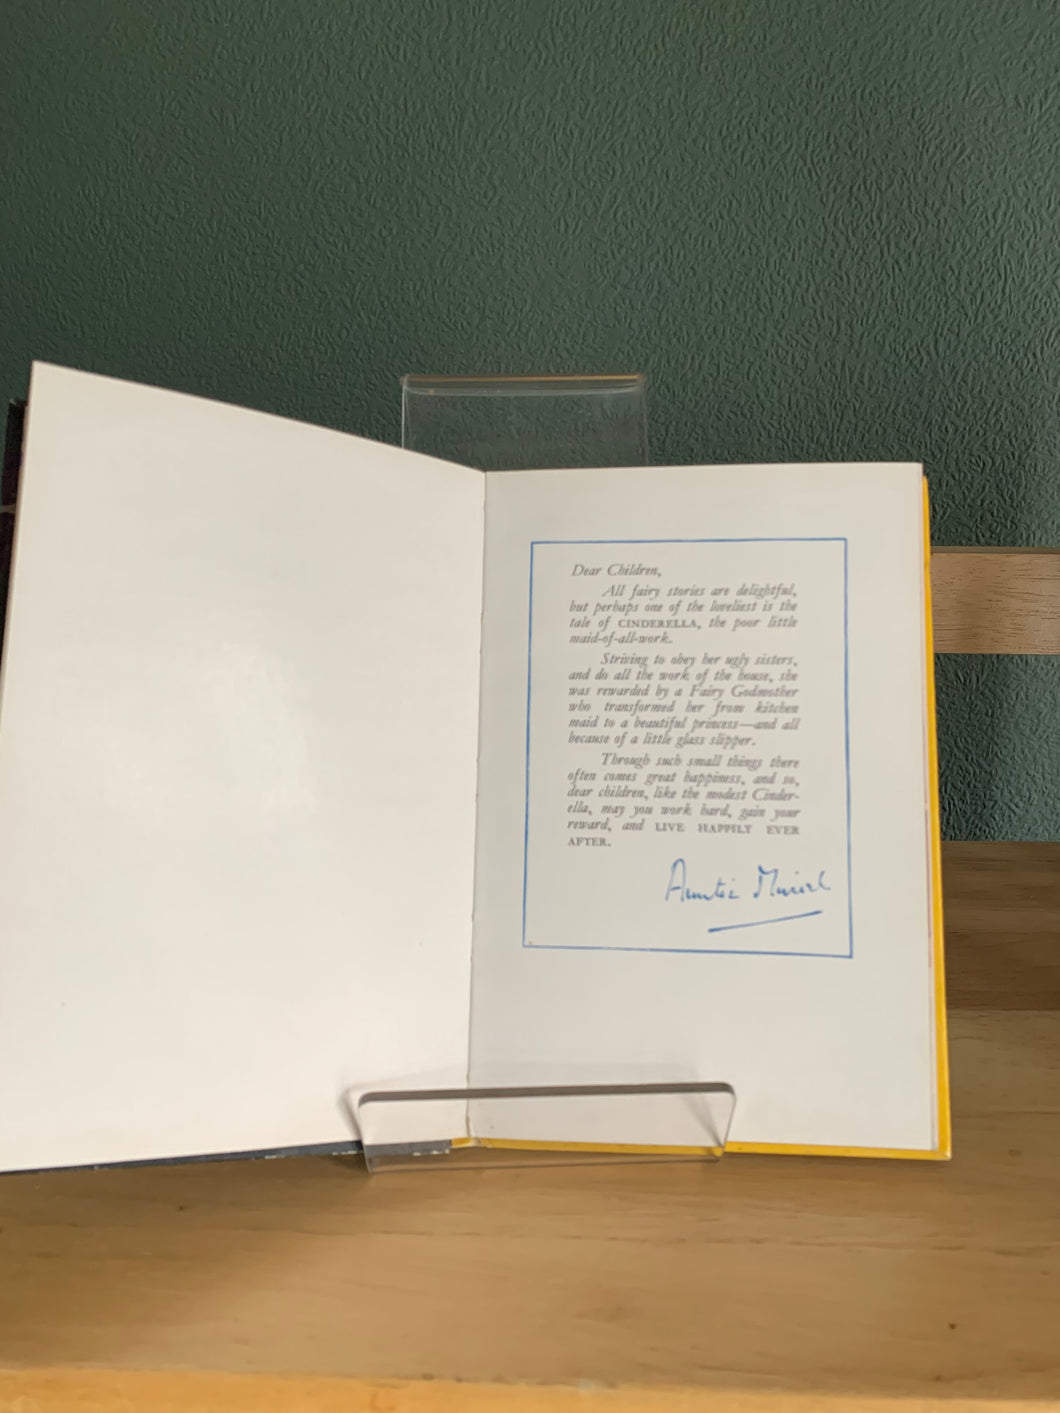 Dear Children,
All fairy stories are delightful,
but perhaps one of the loveliest is the
tale of CINDERELLA, the poor little
maid-of-all-work.
Striving to obey her ugly sisters,
and do all the work of the house, she
was rewarded by a Fairy Godmother
who transformed her from kitchen
maid to a beautiful princess—and all
because of a little glass slipper.
Through such small things there
often comes great happiness, and so,
dear children, like the modest Cinder-
ella, may you work hard, gain your
reward, and LIVE HAPPILY EVER
AFTER.
Auntie Muriel